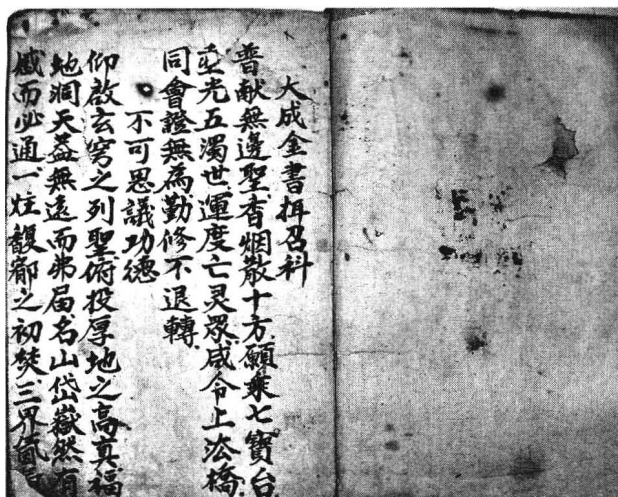 大成金書揖召科
普献無邊聖香烟散十方願乗七寶台
垂光五濁世運度亡灵眾咸令上法橋
同會證無為勤修不退轉
不可思議功德
仰啟玄穹之列聖俯投厚地之高真福
地洞天葢無遠而弗届名山岱嶽然有
感而必通一炷馥郁之初焚三界